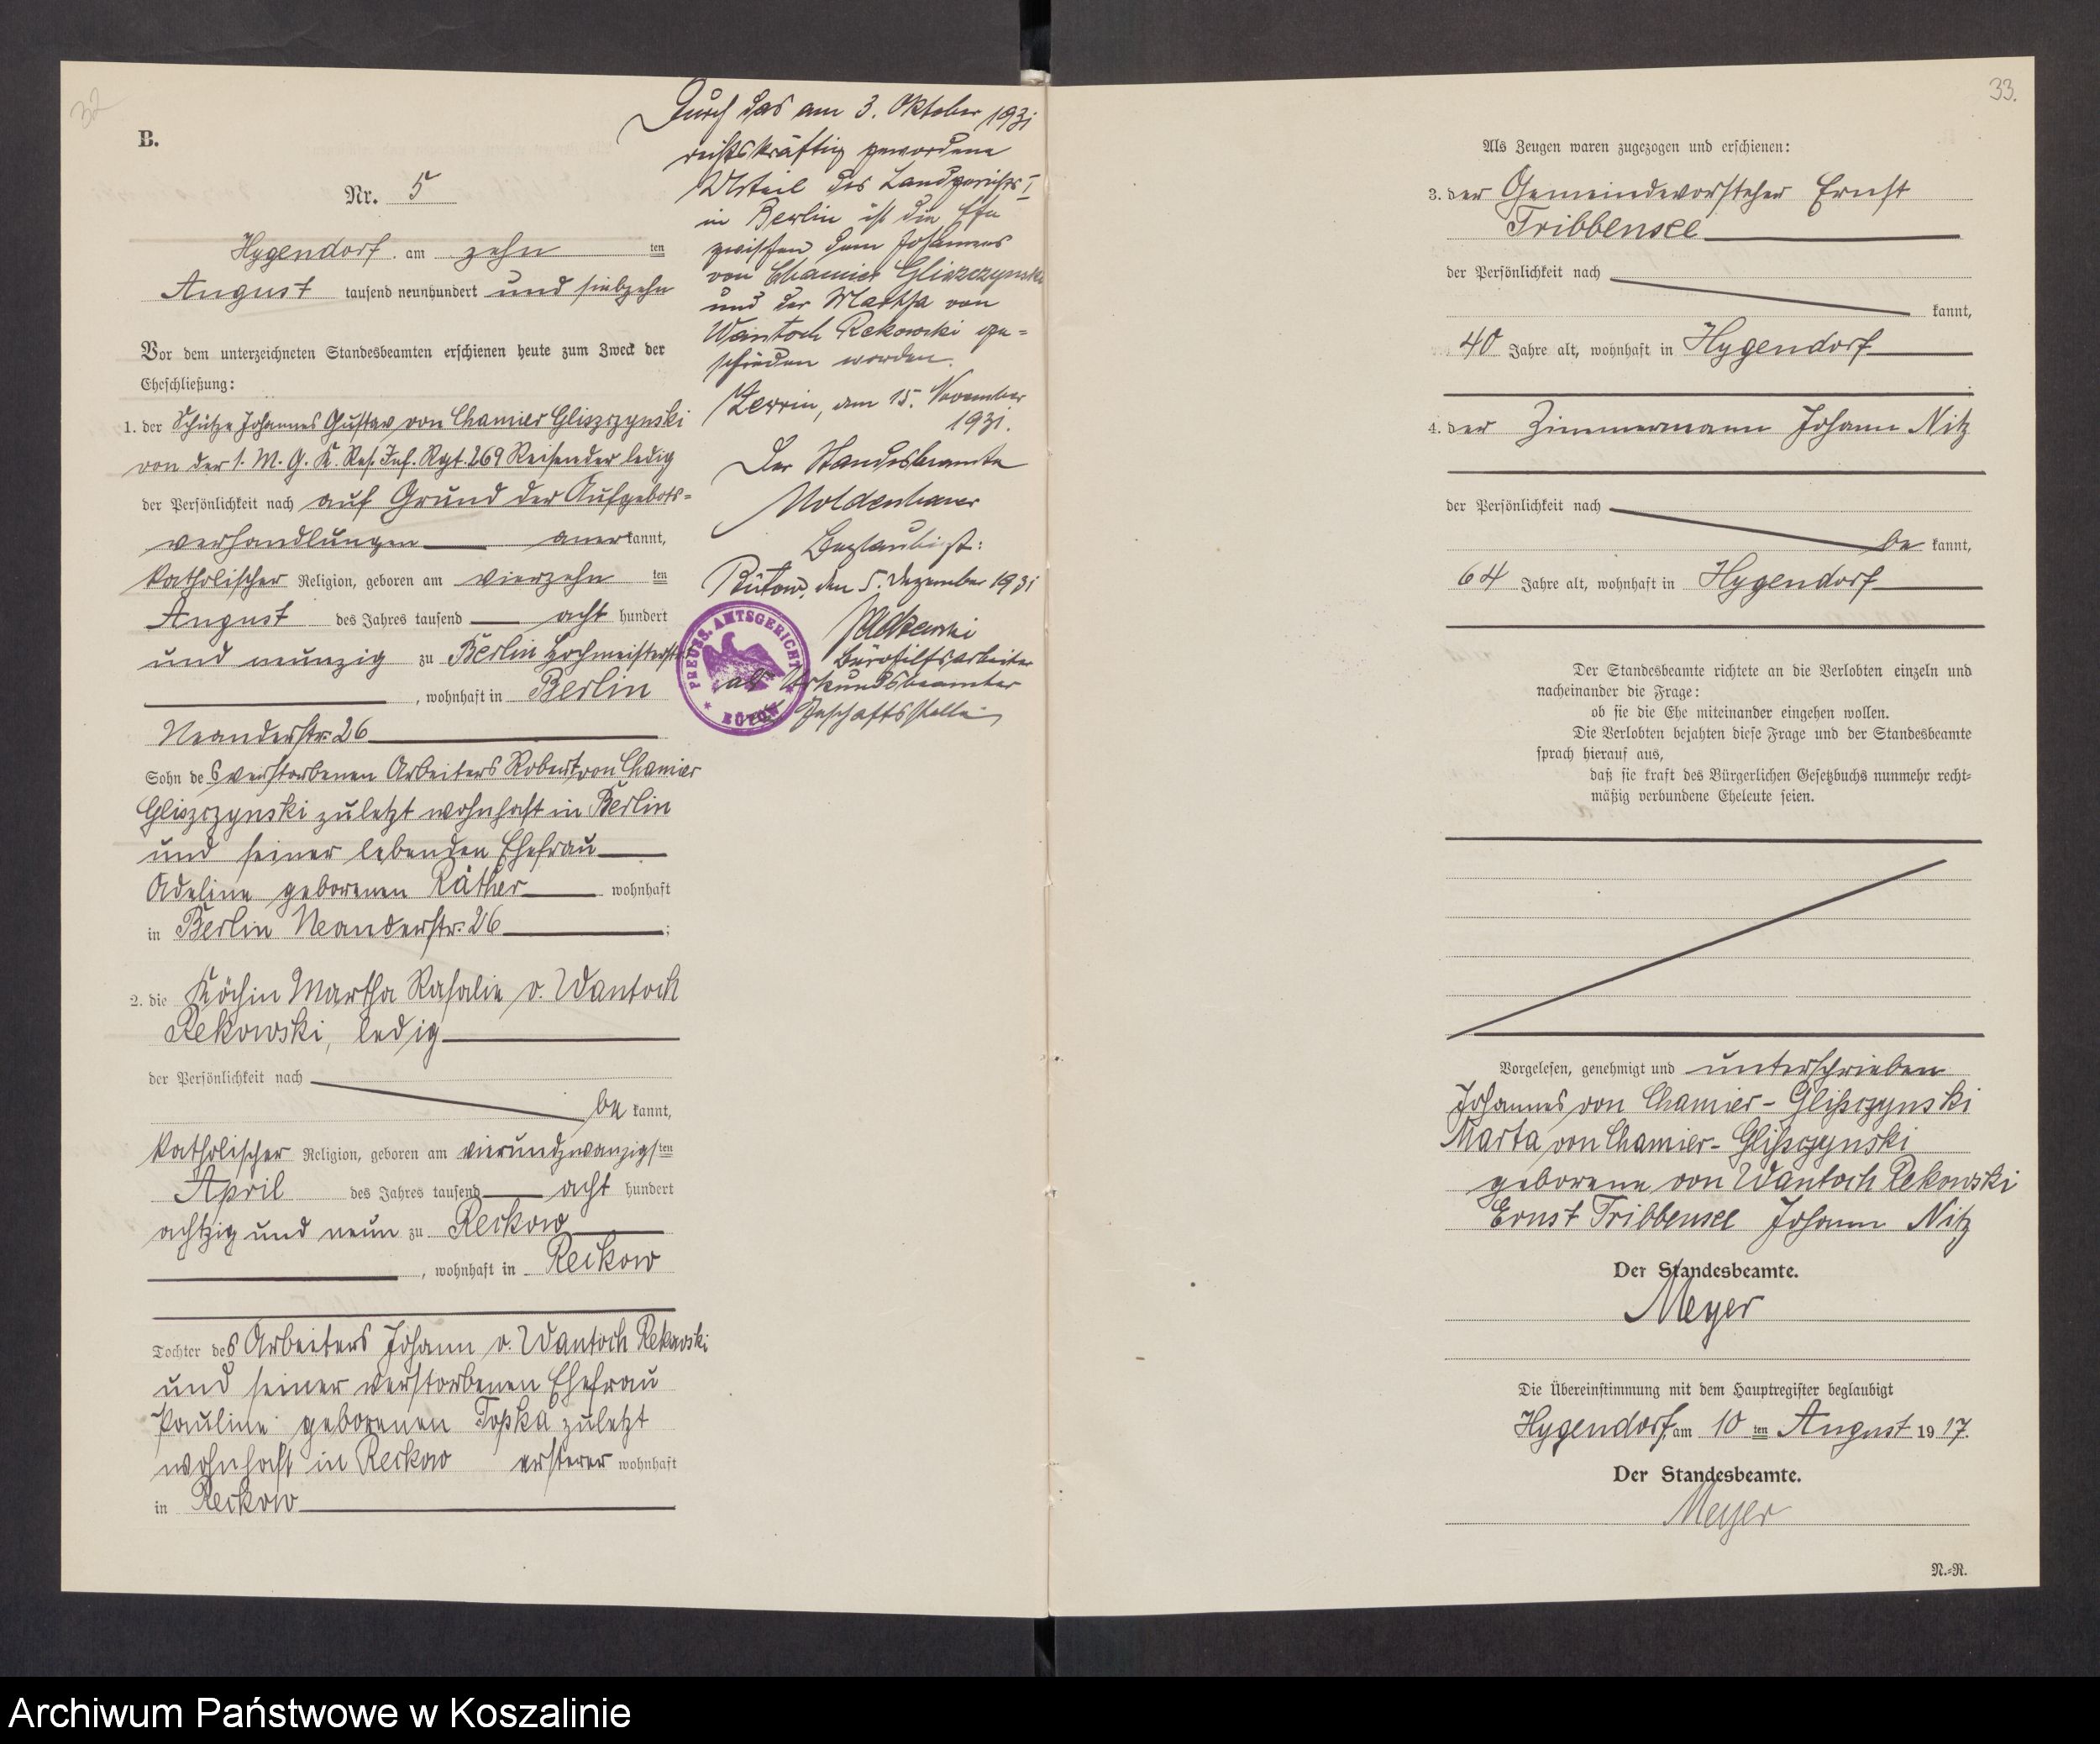 32
B.
Nr. 5
Hygendorf am zehn ten
August tausend neunhundert und siebzehn
Vor dem unterzeichneten Standesbeamten erschienen heute zum Zweck der
Eheschließung:
1. der Schütze Johannes Gustav von Chamier Gliszczynski
von der 1. M. G. K. Res. Inf. Rgt. 269 Reisender ledig
der Persönlichkeit nach auf Grund der Aufgebots=
verhandlungen anerkannt,
katholischer Religion, geboren am vierzehn ten
August des Jahres tausend acht hundert
und neunzig zu Berlin Hochmeisterstr.
, wohnhaft in Berlin
Neanderstr. 26
Sohn des verstorbenen Arbeiters Robert von Chamier
Gliszczynski zuletzt wohnhaft in Berlin
und seiner lebenden Ehefrau
Adeline geborenen Räther wohnhaft
in Berlin Neanderstr. 26 ;
2. die Köchin Martha Rosalie v. Wantoch
Rekowski, ledig
der Persönlichkeit nach
be kannt,
katholischer Religion, geboren am vierundzwanzigsten
April des Jahres tausend acht hundert
achtzig und neun zu Reckow
, wohnhaft in Reckow
Tochter des Arbeiters Johann v. Wantoch Rekowski
und seiner verstorbenen Ehefrau
Pauline geborenen Topka zuletzt
wohnhaft in Reckow ersterer wohnhaft
in Reckow
Durch das am 3. Oktober 1931
rechtskräftig gewordene
Urteil des Landgerichts I
in Berlin ist die Ehe
zwischen dem Johannes
von Chamier Gliszczynski
und der Martha von
Wantoch Rekowski ge=
schieden worden.
Zerrin, am 15. November
1931.
Der Standesbeamte
Moldenhauer
Beglaubigt:
Bütow, den 5. Dezember 1931
Bürohilfsarbeiter
als Urkundsbeamter
der Geschäftsstelle
PREUSS. AMTSGERICHT
* BÜTOW *
33.
Als Zeugen waren zugezogen und erschienen:
3. der Gemeindevorsteher Ernst
Tribbensee
der Persönlichkeit nach
kannt,
40 Jahre alt, wohnhaft in Hygendorf
4. der Zimmermann Johann Nitz
der Persönlichkeit nach
be kannt,
64 Jahre alt, wohnhaft in Hygendorf
Der Standesbeamte richtete an die Verlobten einzeln und
nacheinander die Frage:
ob sie die Ehe miteinander eingehen wollen.
Die Verlobten bejahten diese Frage und der Standesbeamte
sprach hierauf aus,
daß sie kraft des Bürgerlichen Gesetzbuchs nunmehr recht=
mäßig verbundene Eheleute seien.
Vorgelesen, genehmigt und unterschrieben
Johannes von Chamier-Glißczynski
Marta von Chamier-Glißczynski
geborene von Wantoch Rekowski
Ernst Tribbensee Johann Nitz
Der Standesbeamte.
Meyer
Die Übereinstimmung mit dem Hauptregister beglaubigt
Hygendorf, am 10 ten August 19 17.
Der Standesbeamte.
Meyer
N.=N.
Archiwum Państwowe w Koszalinie